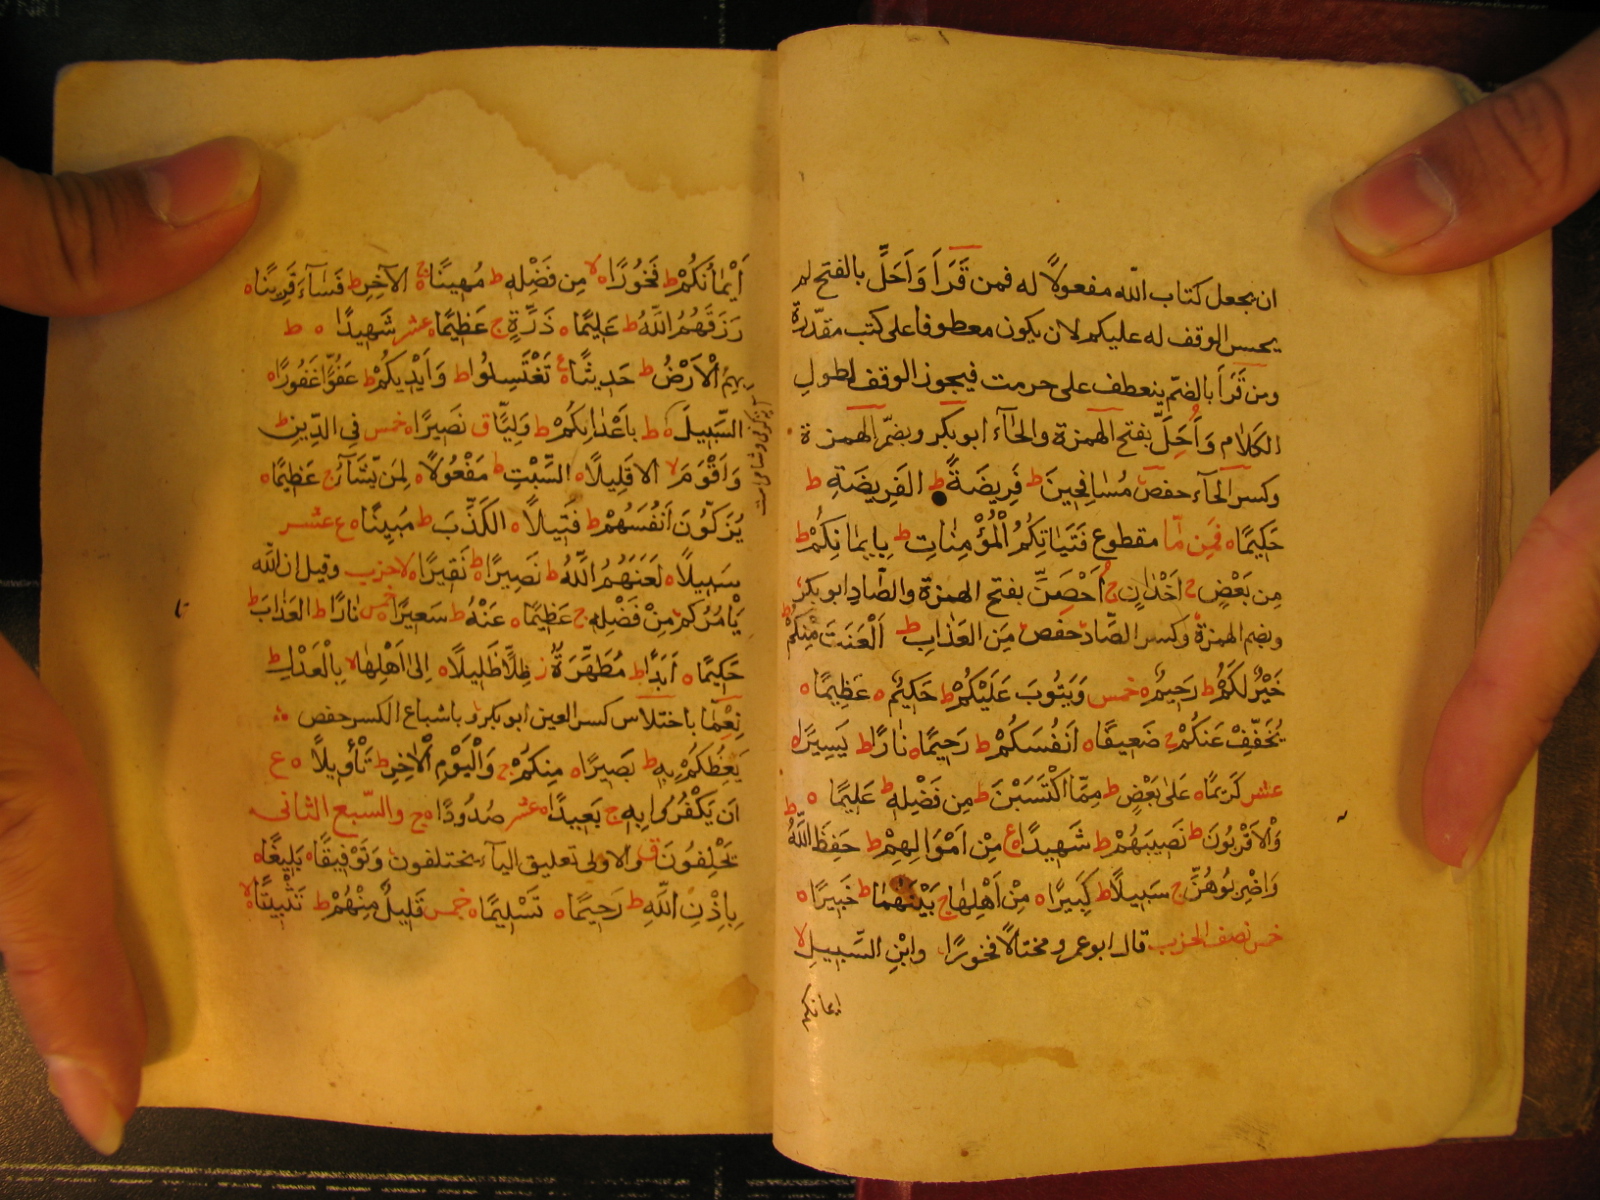 ان يجعل كتاب الله مفعولًا له فمن قَرَاَ وَاَحَلَّ بالفتح لم
يحسن الوقف له عليكم لان يكون معطوفا على كتب مقدّرة
ومن قَرَاَ بالضّم ينعطف على حرمت فيجوز الوقف لطول
الكلام وَاُحَلَّ بفتح الهمزة والحآء ابو بكر وبضّم الهمزة
وكسر الحآء حفص مُسَافِحِينَ ط فَرِيضَةً ط الفَرِيضَةِ ط
حَكِيمًا ه فَمِن مّا مقطوع فَتَيَاتِكُمُ الْمُؤْمِنَاتِ ط بِايمَانِكُمْ ط
مِن بَعْضٍ ج اَخْدَانٍ ج اُحْصِنَّ بفتح الهمزة والصّاد ابو بكر
وبضم الهمزة وكسر الصّاد حفص مِنَ العَذَابِ ط الْعَنَتَ مِنْكُمْ ط
خَيْرٌ لَكُمْ ط رَحِيمٌ ه خمس وَيَتُوبَ عَلَيْكُمْ ط حَكِيمٌ ه عَظِيمًا ه
يُخَفِّفْ عَنكُمْ ج ضَعِيفًا ه اَنفُسَكُمْ ط رَحِيمًا ه نَارًا ط يَسِيرًا ه
عشر كَرِيمًا ه عَلَى بَعْضٍ ط مِمَّا اكْتَسَبْنَ ط مِن فَضْلِهِ ط عَلِيمًا ه
وَالاَقْرَبُونَ ط نَصِيبَهُمْ ط شَهِيدًا ع مِنْ اَمْوَالِهِمْ ط حَفِظَ اللَّهُ ط
وَاضْرِبُوهُنَّ ج سَبِيلًا ط كَبِيرًا ه مِنْ اَهْلِهَا ج بَيْنَهُمَا ط خَبِيرًا ه
خمس نصف الحزب قال ابو عمرو مختالًا فخورًا وابْنِ السَّبِيلِ لا
اَيْمَانُكُمْ ط فَخُورًا ه لا مِن فَضْلِهِ ط مُهِينًا ج ه الآخِرِ ط فَسَآءَ قَرِينًا ه
رَزَقَهُمُ اللَّهُ ط عَلِيمًا ه ذَرَّةٍ ج عَظِيمًا ه عشر شَهِيدًا ه ط
بِهِمُ الْاَرْضُ ط حَدِيثًا ه ع تَغْتَسِلُوا ط وَاَيْدِيكُمْ ط عَفُوًّا غَفُورًا ه
السَّبِيلَ ه ط بِاَعْدَائِكُمْ ط وَلِيًّا ق نَصِيرًا ه خمس فِي الدِّينِ ط
وَاَقْوَمَ لا الا قَلِيلًا ه السَّبْتِ ط مَفْعُولًا ه لِمَنْ يَّشَآءُ ج عَظِيمًا ه
يُزَكُّونَ اَنْفُسَهُمْ ط فَتِيلًا ه الكَذِبَ ط مُبِينًا ه ع عشر
سَبِيلًا ه لَعَنَهُمُ اللَّهُ ط نَصِيرًا ه ط نَقِيرًا ه لا حزب وقيل ان الله
يَاْمُرُكُمْ مِنْ فَضْلِهِ ج عَظِيمًا ه عَنْهُ ط سَعِيرًا ه خمس نَارًا ط العَذَابَ ط
حَكِيمًا ه اَبَدًا ط مُطَهَّرَةٌ ز ظِلًّا ظَلِيلًا ه اِلَى اَهْلِهَا لا بِالْعَدْلِ ط
نِعِمَّا باختلاس كسر العين ابو بكر وباشباع الكسر حفص
يَعِظُكُمْ بِهِ ط بَصِيرًا ه مِنكُمْ ج وَالْيَوْمِ الْآخِرِ ط تَأْوِيلًا ه ع
اَن يَكْفُرُوا بِهِ ج بَعِيدًا ه عشر صُدُودًا ه ج والسّبع الثانى
يَحْلِفُونَ ق والاولى تعليق اليآء بيختلفون وَتَوْفِيقًا ه بَلِيغًا ه
بِاِذْنِ اللَّهِ ط رَحِيمًا ه تَسْلِيمًا ه خمس قَلِيلٌ مِنْهُمْ ط تَثْبِيتًا ه لا